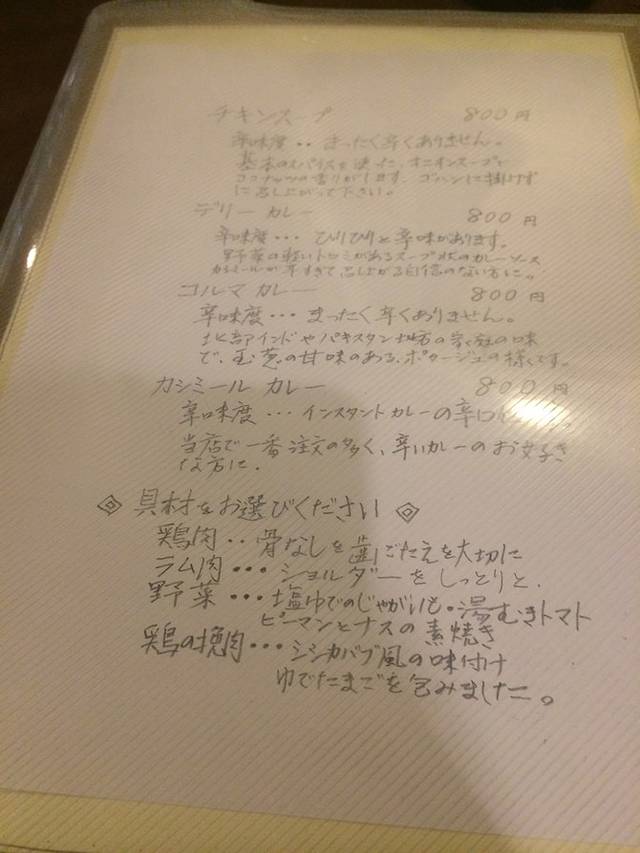 チキンスープ 800円
辛味度‥まったく辛くありません。
基本のスパイスを使った、オニオンスープで
ココナッツの香りがします。ゴハンに掛けず
に召し上がって下さい。
デリー カレー 800円
辛味度…ぴりぴりと辛味があります。
野菜の軽いトロミがあるスープ状のカレーソース
カシミールが辛すぎて召し上がる自信のない方に。
コルマ カレー 800円
辛味度…まったく辛くありません。
北部インドやパキスタン地方の家庭の味
で、玉葱の甘味のある、ポタージュの様です。
カシミール カレー 800円
辛味度…インスタントカレーの辛口
当店で一番注文の多く、辛いカレーのお好き
な方に.
具材をお選びください
鶏肉‥骨なしを歯ごたえを大切に
ラム肉…ショルダーをしっとりと.
野菜…塩ゆでのじゃがいも・湯むきトマト
ピーマンとナスの素焼き
鶏の挽肉…シシカバブ風の味付け
ゆでたまごを包みました。